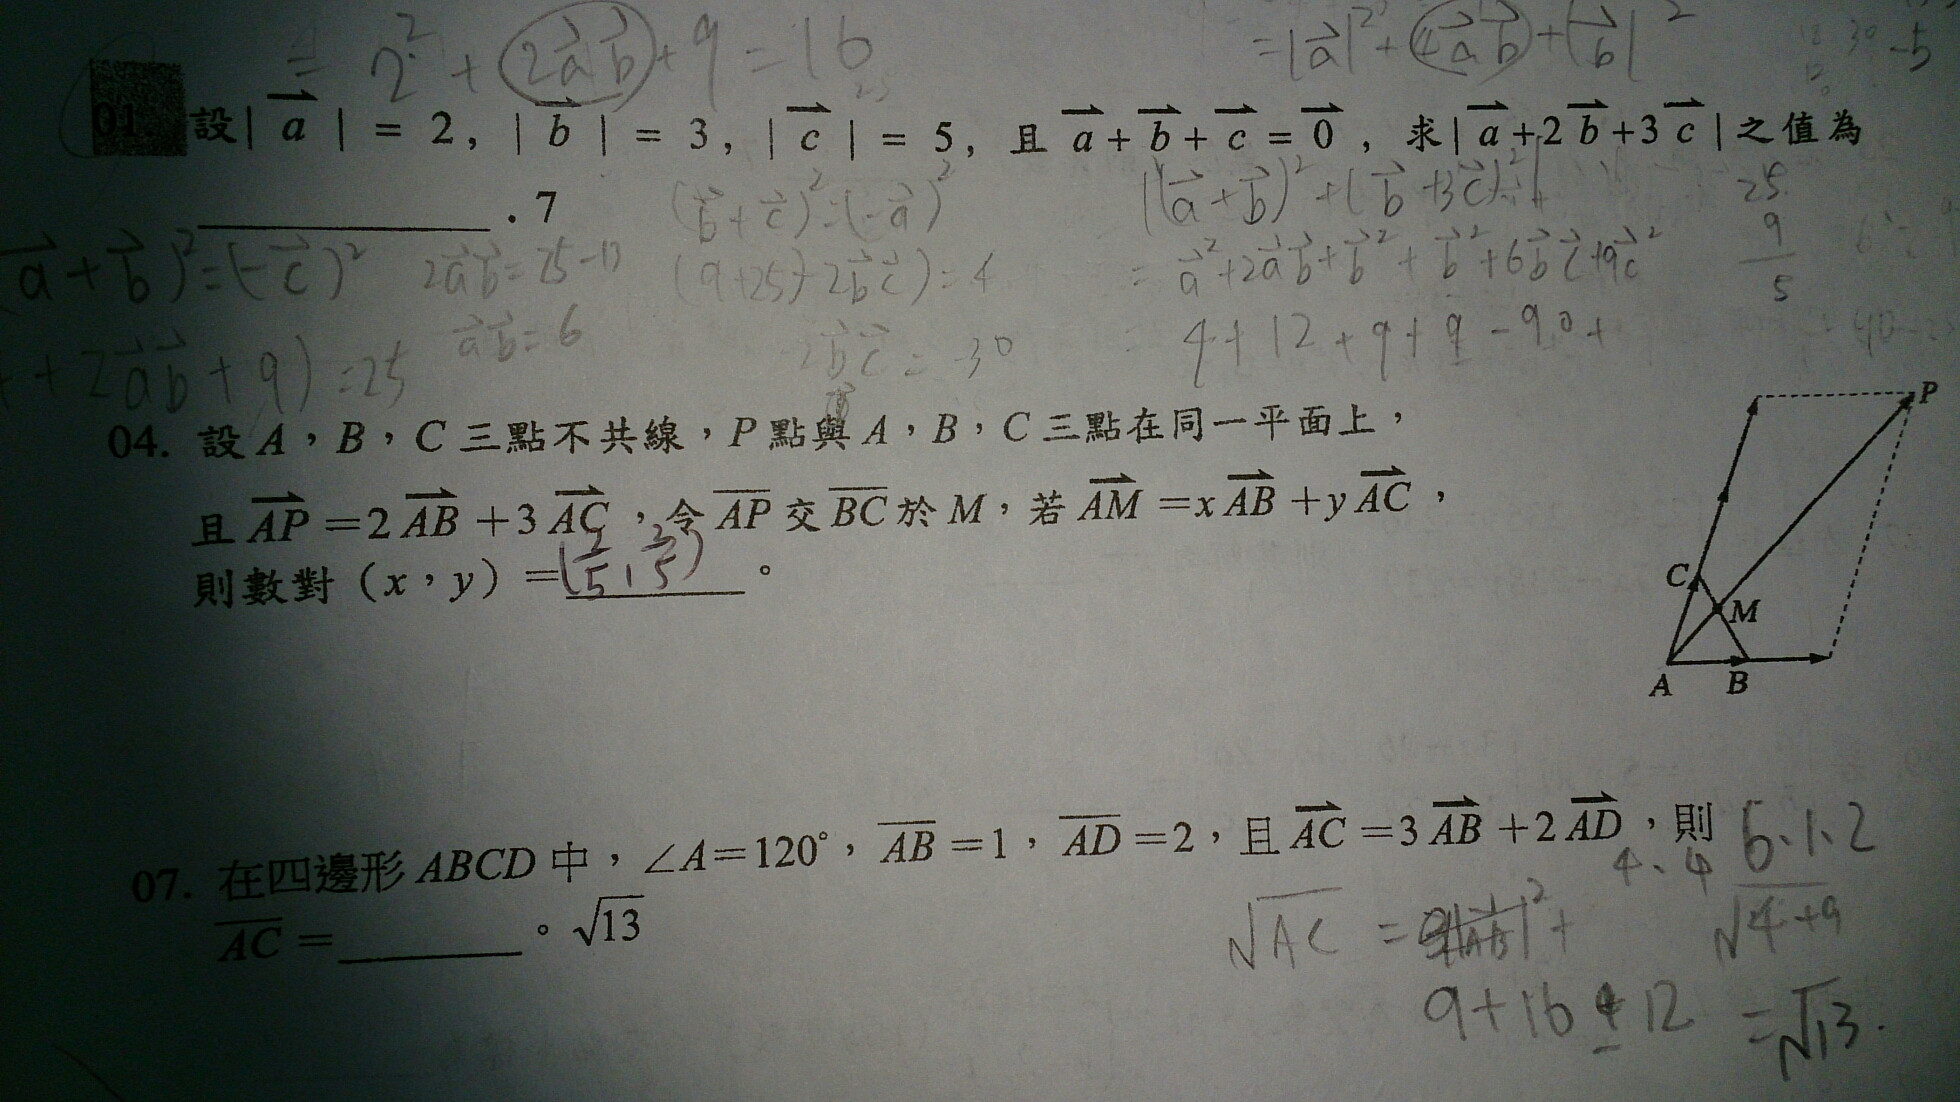 = 2² + 2a⃗b⃗ + 9 = 16
= |a⃗|² + 4a⃗b⃗ + |b⃗|²
-5
01 設| a⃗ | = 2, | b⃗ | = 3, | c⃗ | = 5, 且 a⃗ + b⃗ + c⃗ = 0⃗ , 求| a⃗ +2 b⃗ +3 c⃗ | 之值為
________ . 7
(b⃗ + c⃗)² = (-a⃗)²
|(a⃗ + b⃗)² + (b⃗ + 3c⃗)²|
25
9
5
a⃗ + b⃗)² = (-c⃗)²
2a⃗b⃗ = 25 - 13
(9+25)+2b⃗c⃗) = 4
= a⃗² + 2a⃗b⃗ + b⃗² + b⃗² + 6b⃗c⃗ + 9c⃗²
+ 2a⃗b⃗ + 9) = 25
a⃗b⃗ = 6
2b⃗c⃗ = -30
4 + 12 + 9 + 9 - 90 +
04. 設 A，B，C 三點不共線，P 點與 A，B，C 三點在同一平面上，
且 AP⃗ =2 AB⃗ +3 AC⃗ ，令 A̅P̅ 交 B̅C̅ 於 M，若 AM⃗ =x AB⃗ +y AC⃗ ，
則數對（x，y）=(2/5, 3/5) 。
P
C
M
A B
07. 在四邊形 ABCD 中，∠A=120°，A̅B̅ =1，A̅D̅ =2，且 AC⃗ =3 AB⃗ +2 AD⃗ ，則
A̅C̅ = ________ 。√13
6·1·2
4·4
√AC =
√4+9
9+16-12
= √13.